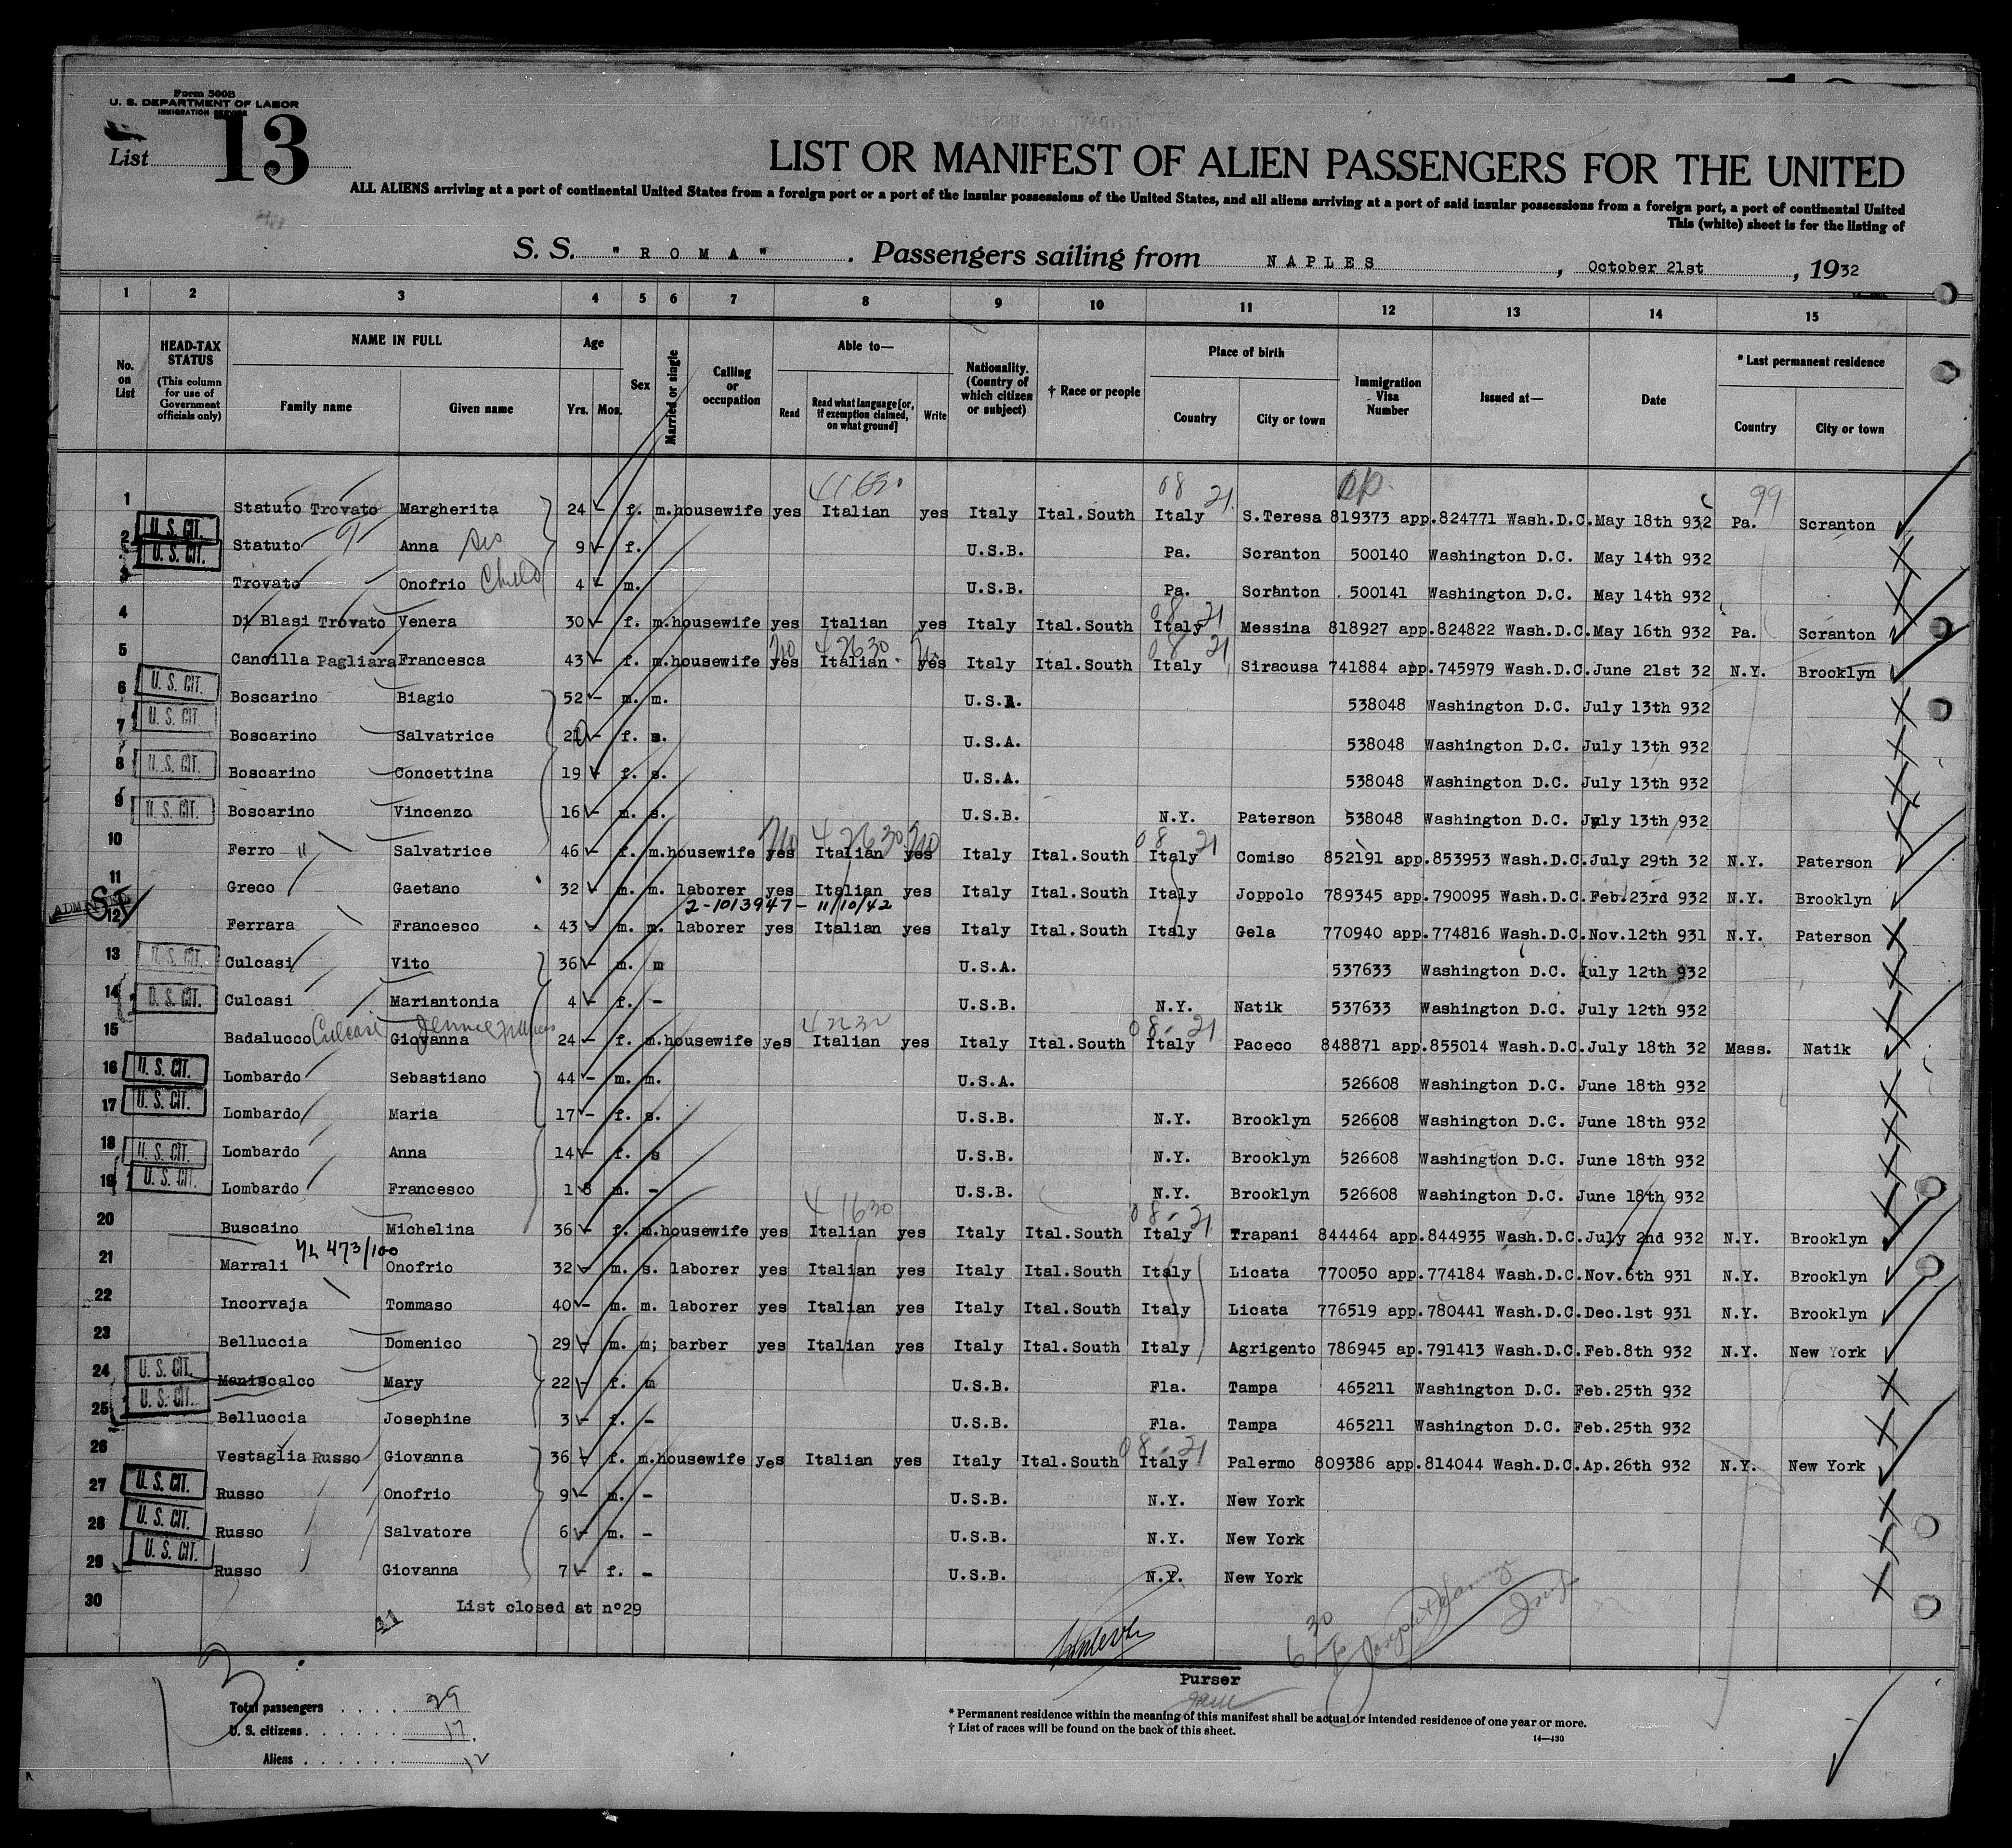 Form 500B
U. S. DEPARTMENT OF LABOR
IMMIGRATION SERVICE
List 13
LIST OR MANIFEST OF ALIEN PASSENGERS FOR THE UNITED
ALL ALIENS arriving at a port of continental United States from a foreign port or a port of the insular possessions of the United States, and all aliens arriving at a port of said insular possessions from a foreign port, a port of continental United
This (white) sheet is for the listing of
S. S. "ROMA". Passengers sailing from NAPLES, October 21st, 1932
1 2 3 4 5 6 7 8 9 10 11 12 13 14 15
No. on List
HEAD-TAX STATUS (This column for use of Government officials only)
NAME IN FULL
Family name Given name
Age
Yrs. Mos.
Sex
Married or single
Calling or occupation
Able to—
Read Read what language [or, if exemption claimed, on what ground] Write
Nationality. (Country of which citizen or subject)
† Race or people
Place of birth
Country City or town
Immigration Visa Number
Issued at—
Date
* Last permanent residence
Country City or town
1 Statuto Trovato Margherita 24 - f. m. housewife yes Italian yes Italy Ital.South Italy S.Teresa 819373 app.824771 Wash.D.C. May 18th 932 Pa. Scranton
2 U. S. CIT. Statuto Anna 9 - f. U.S.B. Pa. Scranton 500140 Washington D.C. May 14th 932
3 U. S. CIT. Trovato Onofrio Child 4 - m. U.S.B. Pa. Scranton 500141 Washington D.C. May 14th 932
4 Di Blasi Trovato Venera 30 - f. m. housewife yes Italian yes Italy Ital.South Italy 08 21 Messina 818927 app.824822 Wash.D.C. May 16th 932 Pa. Scranton
5 Cancilla Pagliara Francesca 43 - f. m. housewife yes no Italian yes no Italy Ital.South Italy 08 21 Siracusa 741884 app.745979 Wash.D.C. June 21st 32 N.Y. Brooklyn
6 U. S. CIT. Boscarino Biagio 52 - m. m. U.S.A. 538048 Washington D.C. July 13th 932
7 U. S. CIT. Boscarino Salvatrice 21 - f. s. U.S.A. 538048 Washington D.C. July 13th 932
8 U. S. CIT. Boscarino Concettina 19 - f. s. U.S.A. 538048 Washington D.C. July 13th 932
9 U. S. CIT. Boscarino Vincenzo 16 - m. s. U.S.B. N.Y. Paterson 538048 Washington D.C. July 13th 932
10 Ferro Salvatrice 46 - f. m. housewife yes no Italian yes no Italy Ital.South Italy 08 21 Comiso 852191 app.853953 Wash.D.C. July 29th 32 N.Y. Paterson
11 Greco Gaetano 32 - m. m. laborer yes Italian yes Italy Ital.South Italy Joppolo 789345 app.790095 Wash.D.C. Feb.23rd 932 N.Y. Brooklyn
2-1013947 - 11/10/42
12 Ferrara Francesco 43 - m. m. laborer yes Italian yes Italy Ital.South Italy Gela 770940 app.774816 Wash.D.C. Nov.12th 931 N.Y. Paterson
13 U. S. CIT. Culcasi Vito 36 - m. m U.S.A. 537633 Washington D.C. July 12th 932
14 U. S. CIT. Culcasi Mariantonia 4 - f. - U.S.B. N.Y. Natik 537633 Washington D.C. July 12th 932
15 Badalucco Culcasi Giovanna 24 - f. m. housewife yes Italian yes Italy Ital.South Italy 08 - 21 Paceco 848871 app.855014 Wash.D.C. July 18th 32 Mass. Natik
16 U. S. CIT. Lombardo Sebastiano 44 - m. m. U.S.A. 526608 Washington D.C. June 18th 932
17 U. S. CIT. Lombardo Maria 17 - f. s. U.S.B. N.Y. Brooklyn 526608 Washington D.C. June 18th 932
18 U. S. CIT. Lombardo Anna 14 - f. s U.S.B. N.Y. Brooklyn 526608 Washington D.C. June 18th 932
19 U. S. CIT. Lombardo Francesco 1 8 m. - U.S.B. N.Y. Brooklyn 526608 Washington D.C. June 18th 932
20 Buscaino Michelina 36 - f. m. housewife yes Italian yes Italy Ital.South Italy 08 - 21 Trapani 844464 app.844935 Wash.D.C. July 2nd 932 N.Y. Brooklyn
21 Marrali Onofrio 32 - m. s. laborer yes Italian yes Italy Ital.South Italy Licata 770050 app.774184 Wash.D.C. Nov.6th 931 N.Y. Brooklyn
22 Incorvaja Tommaso 40 - m. m. laborer yes Italian yes Italy Ital.South Italy Licata 776519 app.780441 Wash.D.C. Dec.1st 931 N.Y. Brooklyn
23 Belluccia Domenico 29 - m. m; barber yes Italian yes Italy Ital.South Italy Agrigento 786945 ap.791413 Wash.D.C. Feb.8th 932 N.Y. New York
24 U. S. CIT. Maniscalco Mary 22 - f. m U.S.B. Fla. Tampa 465211 Washington D.C. Feb.25th 932
25 U. S. CIT. Belluccia Josephine 3 - f. - U.S.B. Fla. Tampa 465211 Washington D.C. Feb.25th 932
26 Vestaglia Russo Giovanna 36 - f. m. housewife yes Italian yes Italy Ital.South Italy 08 - 21 Palermo 809386 app.814044 Wash.D.C. Ap.26th 932 N.Y. New York
27 U. S. CIT. Russo Onofrio 9 - m. - U.S.B. N.Y. New York
28 U. S. CIT. Russo Salvatore 6 - m. - U.S.B. N.Y. New York
29 U. S. CIT. Russo Giovanna 7 - f. - U.S.B. N.Y. New York
30 List closed at n°29
Purser
Total passengers 29
U. S. citizens 17
Aliens 12
* Permanent residence within the meaning of this manifest shall be actual or intended residence of one year or more.
† List of races will be found on the back of this sheet.
14—430